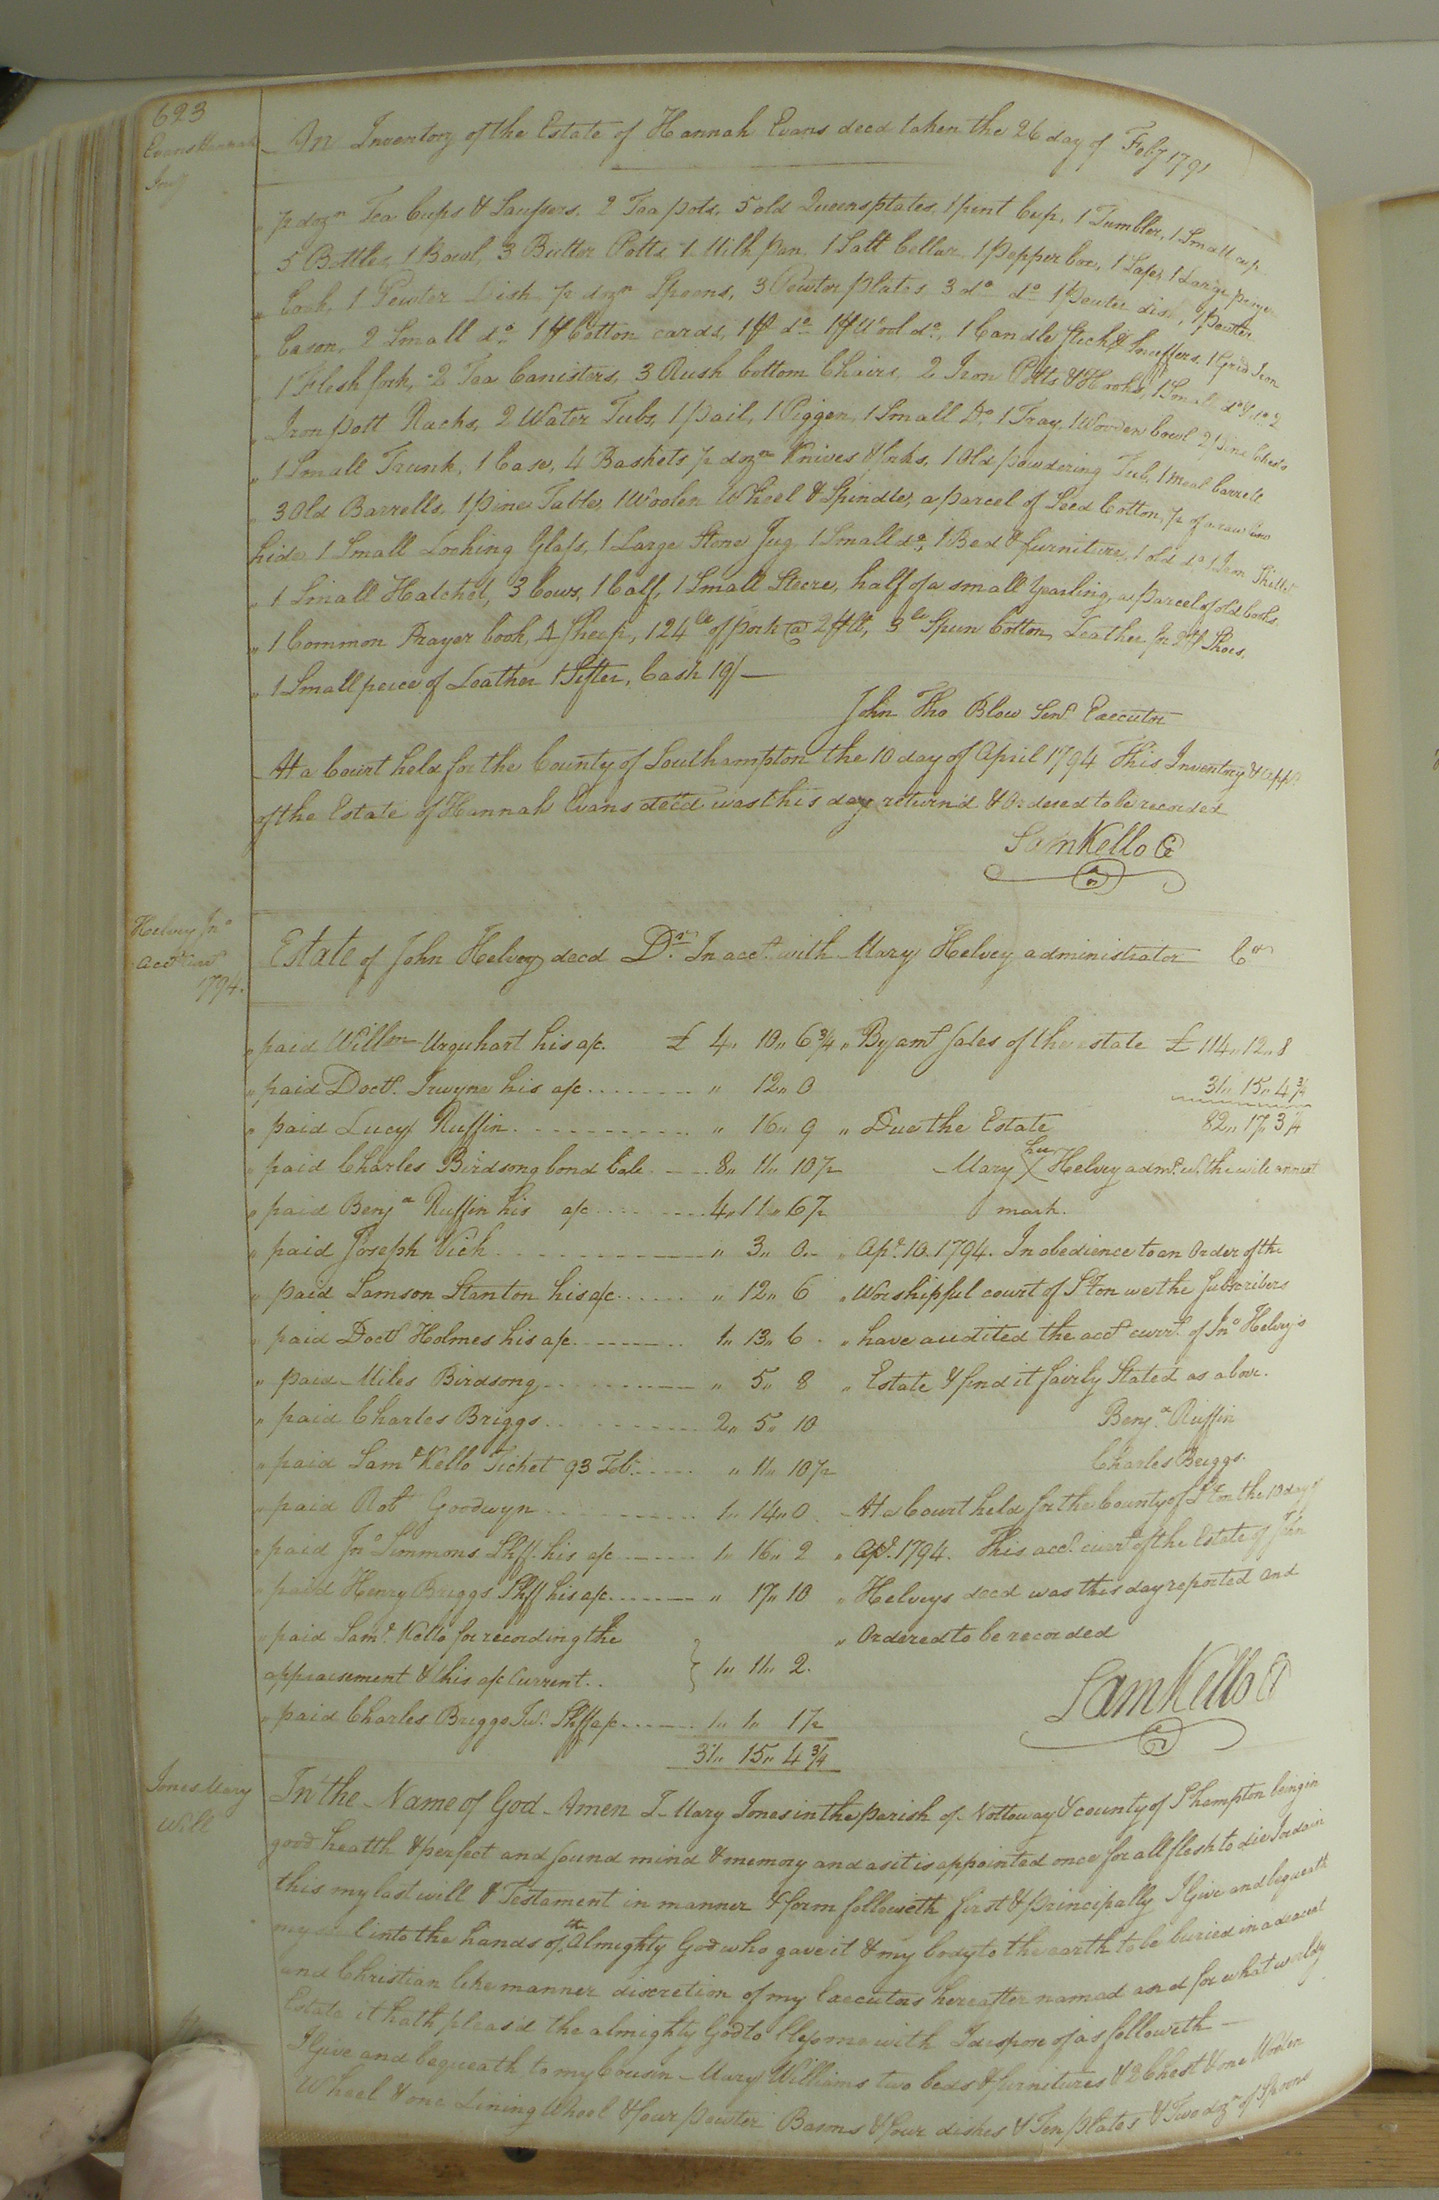 623
Evans Hannah
Invy
An Inventory of the Estate of Hannah Evans decd taken the 26 day of Feby 1791
" ½ dozn Tea Cups & Saussers, 2 Tea pots, 5 old Queens plates, 1 pint Cup, 1 Tumbler, 1 Small cup
" 5 Bottles, 1 Bowl, 3 Butter Potts, 1 Milk pan, 1 Salt Cellar, 1 Pepper box, 1 Large
" 1 Pewter Dish, ½ dozn Spoons, 3 Pewter plates 3 do do 1 pewter dish, 1 pewter
" bason, 2 Small do 1 pr Cotton cards, 1 pr do 1 pr Wool do, 1 Candle Stick & Snuffers, 1 Grid Iron
" 1 Flesh fork, 2 Tea Canisters, 3 Rush bottom Chairs, 2 Iron Potts & Hooks, 1 Small do & do 2
" Iron pott Racks, 2 Water Tubs, 1 pail, 1 Piggen, 1 Small Do 1 Tray, 1 Wooden bowl 2 pine Chests
" 1 Small Trunk, 1 Case, 4 Baskets ½ dozn Knives & forks, 1 Old powdering Tub, 1 meal barrell
" 3 Old Barrells, 1 pine Table, 1 Woolen Wheel & Spindle, a parcel of Seed Cotton, ½ of a raw
hide 1 Small Looking Glass, 1 Large Stone Jug 1 Small do, 1 Bed & furniture, 1 old do 1 Iron Skillet
" 1 Small Hatchet, 3 Cows, 1 Calf, 1 Small Steere, half of a small Yearling, a parcel of old books
" 1 Common Prayer book, 4 Sheep, 124 lb of pork @ 2 , 3 lb Spun Cotton, Leather for 2 pr Shoes,
" 1 Small peice of Leather 1 Sifter, Cash 19/—
John Tho Blow Senr Executor
At a Court held for the County of Southampton the 10 day of April 1794 This Inventory &
of the Estate of Hannah Evans decd was this day return'd & Ordered to be recorded
Sam Kello C
Helvey Jno
acct Curt
1794.
Estate of John Helvey decd Dr. In acct. with Mary Helvey administrator Cr
" paid Willm Urquhart his a/c. £ 4" 10" 6¾ " By amt Sales of the estate £ 114" 12" 8
" paid Doctr. Irwyne his a/c . . . . . . . " 12" 0 31" 15" 4¾
" paid Lucy Ruffin . . . . . . . . " 16" 9 " Due the Estate 82" 17" 3¼
" paid Charles Birdsong bond Bale . . . 8" 11" 10½ Mary her X Helvey admr. wt. the will annext
" paid Benja Ruffin his a/c . . . . . . . 4" 11" 6½ mark.
" paid Joseph Vick . . . . . . . . . " 3" 0 " " Apl. 10. 1794. In obedience to an Order of the
" paid Samson Stanton his a/c . . . . . . " 12" 6 " Worshipful court of S'ton we the Subscribers
" paid Doctr Holmes his a/c . . . . . . . 1" 13" 6 " have audited the acct curnt. of Jno Helvey's
" paid Miles Birdsong . . . . . . . . " 5" 8 " Estate & find it fairly Stated as above.
" paid Charles Briggs . . . . . . . . 2" 5" 10 Benja. Ruffin
" paid Saml Kello Ticket 93 Tob. . . . . . " 11" 10½ Charles Briggs.
" paid Robt Goodwyn . . . . . . . . 1" 14" 0 At a Court held for the County of S'ton the 10 day of
" paid Jno Simmons Shff. his a/c . . . . . 1" 16" 2 " Apl. 1794. This acct. curnt of the Estate of John
" paid Henry Briggs Shff his a/c . . . . . . " 17" 10 " Helveys decd was this day reported and
" paid Saml. Kello for recording the " Ordered to be recorded
appraisement & this a/c Current . . } 1" 11" 2.
Sam Kello C
" paid Charles Briggs Junr. Shff a/c . . . . . 1" 1" 1½
31" 15" 4¾
Jones Mary
Will
In the Name of God Amen I Mary Jones in the parish of Nottoway & county of S'hampton being in
good health & perfect and sound mind & memory and as it is appointed once for all flesh to die I ordain
this my last will & Testament in manner & form followeth first & principally I Give and bequeath
my soul into the hands of the Almighty God who gave it & my body to the earth to be buried in a deacent
and Christian like manner discretion of my Executors hereafter named and for what worldly
Estate it hath pleasd the almighty God to bless me with I dispose of as followeth —
I Give and bequeath to my Cousin Mary Williams two beds & furnitures & 2 Chest & one Woolen
Wheel & one Lining Wheel & four pewter Basons & four dishes & Ten plates & Two dozn of Spoons